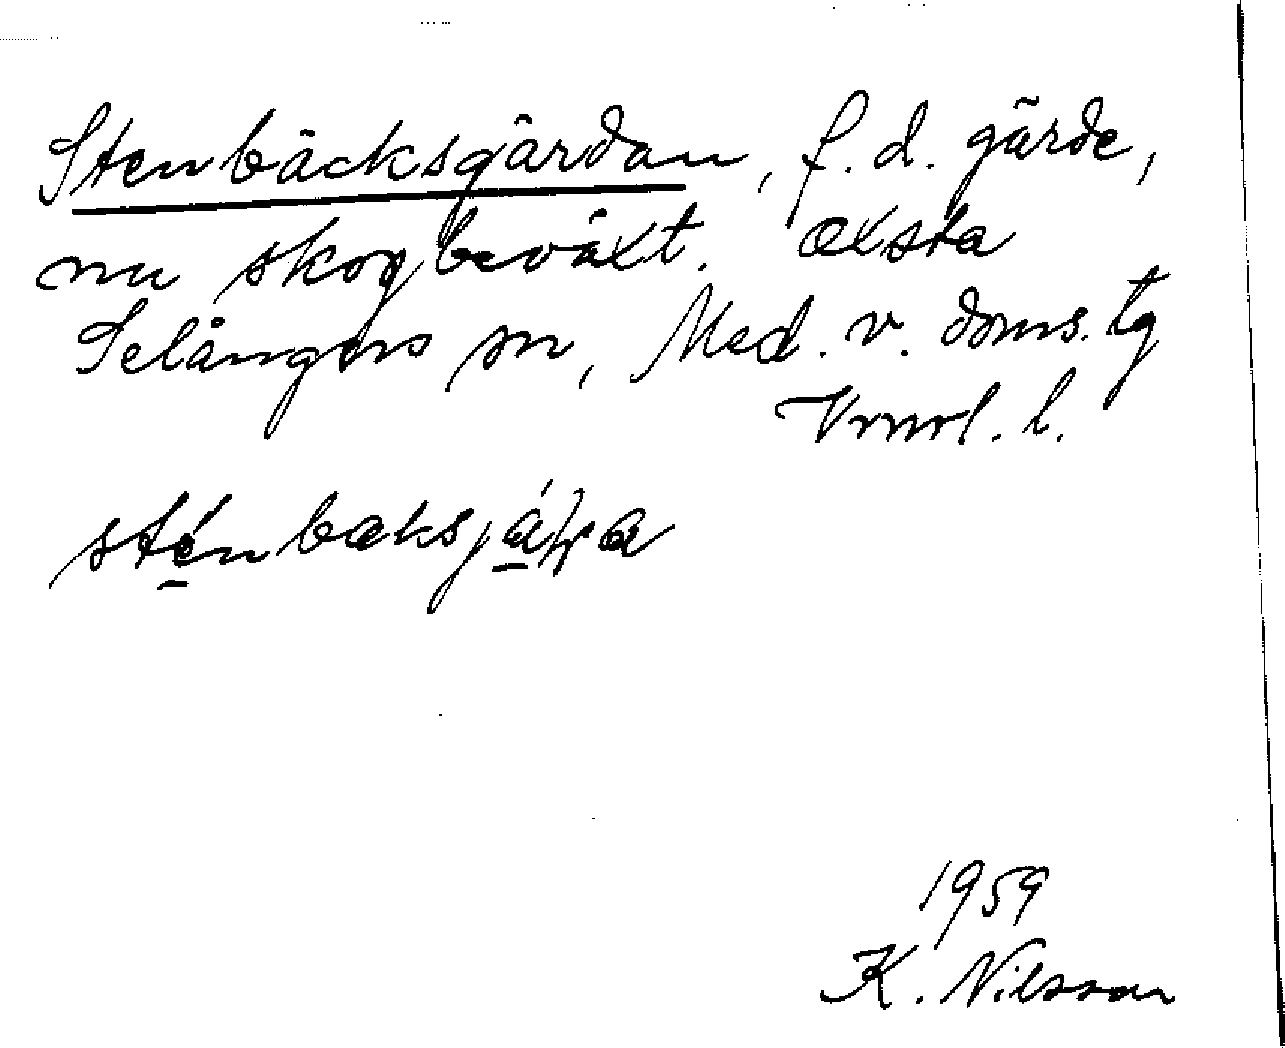 Stenbäcksgärdan, f.d. gärde,
nu skogbeväxt. Oxsta
Selångers sn, Med. v. doms. tg
Vnrl. l.
sténbæksjä
1959
K. Nilsson